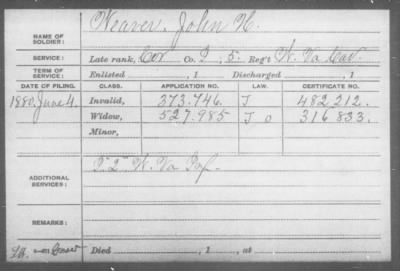 NAME OF SOLDIER: Weaver, John H.
SERVICE: Late rank, Cor Co. I, 5 Reg't W. Va Cav.
TERM OF SERVICE: Enlisted , 1 Discharged , 1
DATE OF FILING. CLASS. APPLICATION NO. LAW. CERTIFICATE NO.
1880, June 4. Invalid, 373.746. J 482.212.
Widow, 527.985 J O 316.833.
Minor,
ADDITIONAL SERVICES: W. Va Inf.
REMARKS:
Died , 1 , at